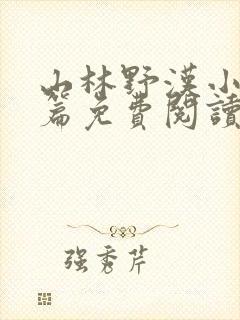 山林野漢小
篇免費閱讀
强秀芹